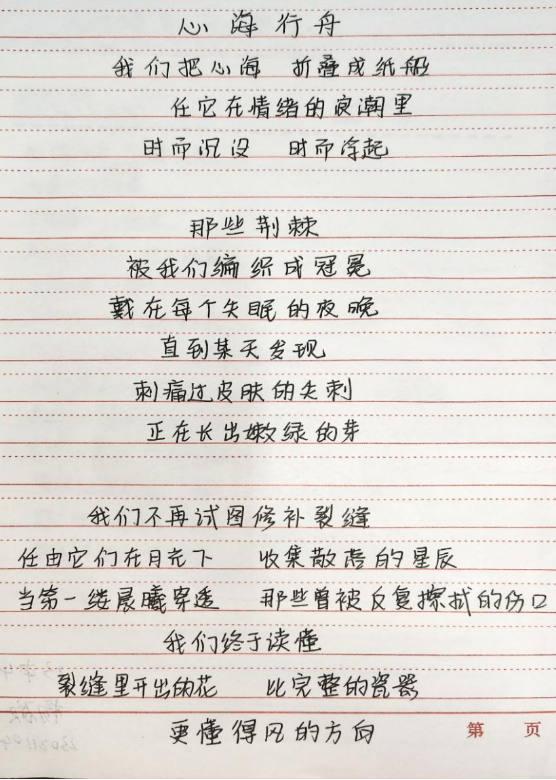 心海行舟
我们把心海 折叠成纸船
任它在情绪的浪潮里
时而沉没 时而浮起
那些荆棘
被我们编织成冠冕
戴在每个失眠的夜晚
直到某天发现
刺痛过皮肤的尖刺
正在长出嫩绿的芽
我们不再试图修补裂缝
任由它们在月光下 收集散落的星辰
当第一缕晨曦穿透 那些曾被反复擦拭的伤口
我们终于读懂
裂缝里开出的花 比完整的瓷器
更懂得风的方向
第 页